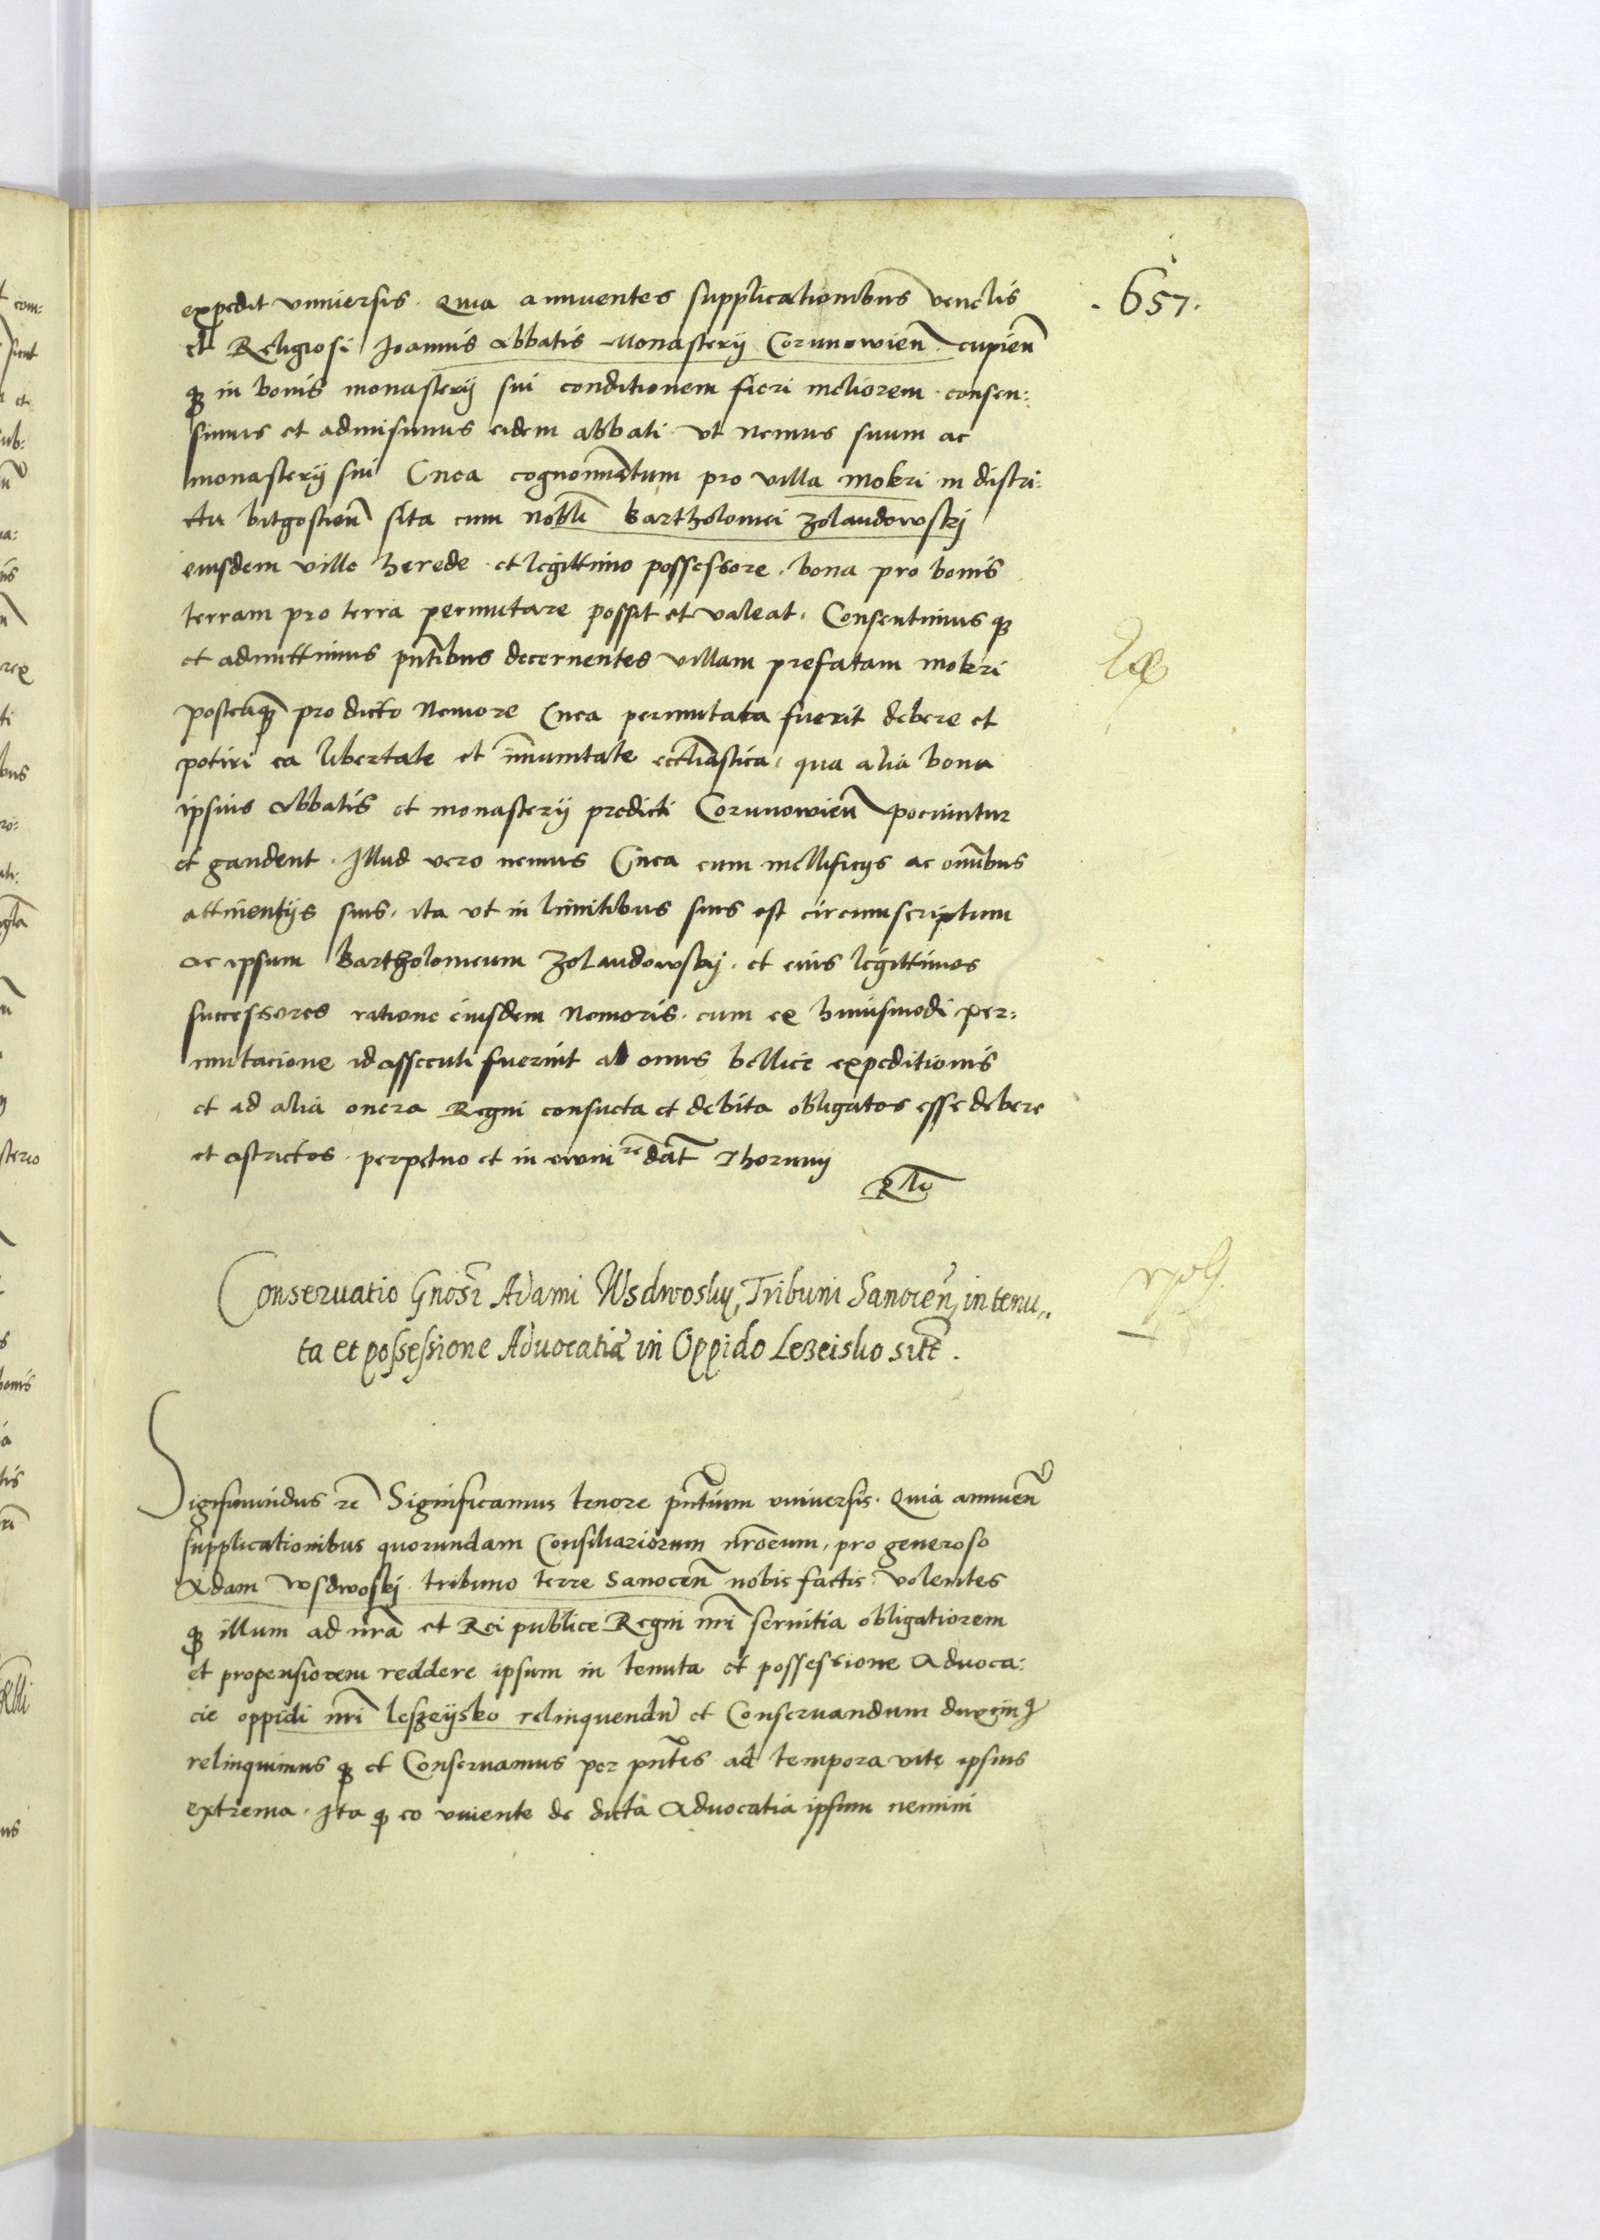 .657.
expedit vniuersis. Quia annuentes supplicationibus venelis
et Religiosi Joannis Abbatis Monasterij Corunowien̄ cupien̄
q̃ in bonis monasterij sui conditionem fieri meliorem. consen:
simus et admisimus eidem abbati vt nemus suum ac
monasterij sui Cnea cognominatum pro villa Mokri in distri:
ctu bitgostien̄ sita cum nobli Bartholomei Zolandowskj
eiusdem ville herede et legittimo possessore. bona pro bonis
terram pro terra permutare possit et valeat. Consentimus q̃
et admittimus pn̄tibus decernentes villam prefatam mokri
posteaq̃ pro dicto nemore Cnea permutata fuerit debere et
potiri ea libertate et im̄unitate eccliastica, qua alia bona
ipsius Abbatis et monasterij predicti Corunowien̄ pociuntur
et gaudent. Illud vero nemus Cnea cum mellificijs ac om̄ibus
attinentijs suis, ita vt in limitibus suis est circumscriptum
ac ipsum Bartholomeum Zolandowskij. et eius legittimos
successores ratione eiusdem Nemoris. cum ex huiusmodi per:
mutacione id assecuti fuerint ad onus bellice expeditionis
et ad alia onera Regni consueta et debita obligatos esse debere
et astrictos. perpetuo et in euum rc̄ dat̄ Thorunij
Conseruatio Gnosi Adami Wsdwoskij, Tribuni Sanocen̄, in tenu,,
ta et possessione Aduocatiæ in Oppido Lezeisko sitē.
Sigismundus rc̄ Significamus tenore pn̄tium vniuersis. Quia annuen̄
supplicationibus quorundam Consiliariorum nr̄orum, pro generoso
Adam wsdwoskj tribuno terre Sanocen̄ nobis factis. volentes
q̃ illum ad nr̄a et Rei publice Regni nr̄i seruitia obligatiorem
et propensiorem reddere ipsum in tenuta et possessione Aduoca:
cie oppidi nr̄i leszeijsko relinquendu̅ et Conseruandum duximꝰ
relinquimus q̃ et Conseruamus per pn̄tes ad tempora vite ipsius
extrema. Ita q̃ eo viuente de dicta Aduocatia ipsum nemini